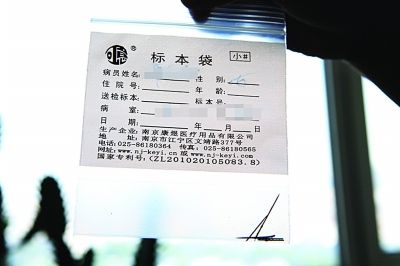 标本袋 小#
病员姓名: 性别:
住院号: 年龄:
送检标本: 标本号:
病室:
日期: 年 月 日
生产企业:南京康煜医疗用品有限公司
地址:南京市江宁区文靖路377号
电话:025-86180364 传真:025-86180565
网址:www.nj-keyi.cn 或 www.nj-keyi.com
国家专利号:(ZL201020105083.8)